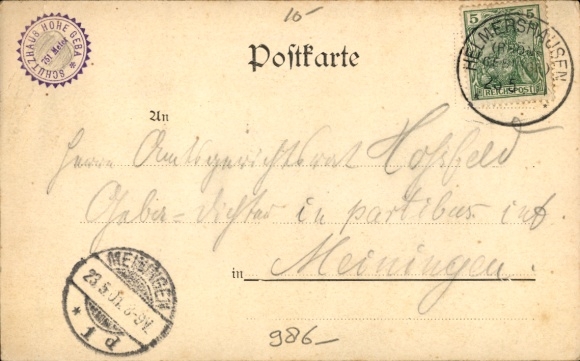 10-
SCHUTZHAUS HOHE GEBA
751 Meter
Postkarte
5 5
REICHSPOST
HELMERSHAUSEN
An
Herrn Amtsgerichtsrat Hoßfeld
Geba-Dichter in partibus inf.
in Meiningen.
MEININGEN
23.5.01. 8-9V.
* 1 d
986-